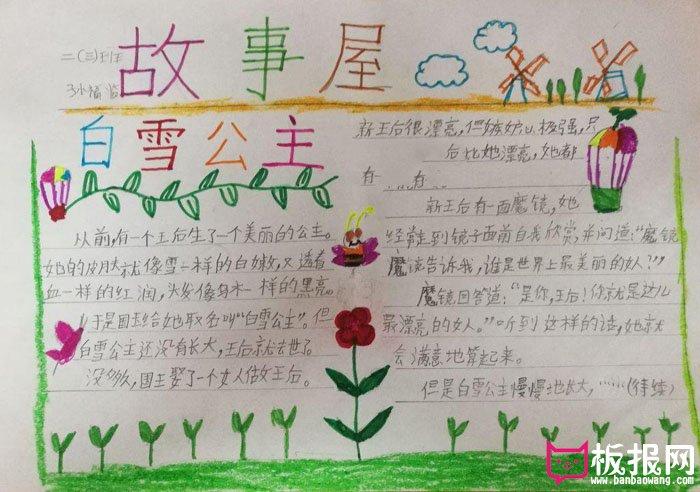 二(三)班
故事屋
白雪公主
从前,有一个王后生了一个美丽的公主。
她的皮肤就像雪一样的白嫩,又透着
血一样的红润,头发像乌木一样的黑亮。
于是国王给她取名叫“白雪公主”。但
白雪公主还没有长大,王后就去世了。
没多久,国王娶了一个女人做王后。
新王后很漂亮,但嫉妒心极强,只
后比她漂亮,她都
有……有
新王后有一面魔镜,她
经常走到镜子面前自我欣赏,并问道:“魔镜
魔镜告诉我,谁是世界上最美丽的女人?”
魔镜回答道:“是你,王后!你就是这儿
最漂亮的女人。”听到这样的话,她就
会满意地笑起来。
但是白雪公主慢慢地长大,……(待续)
板报网
www.banbaowang.com